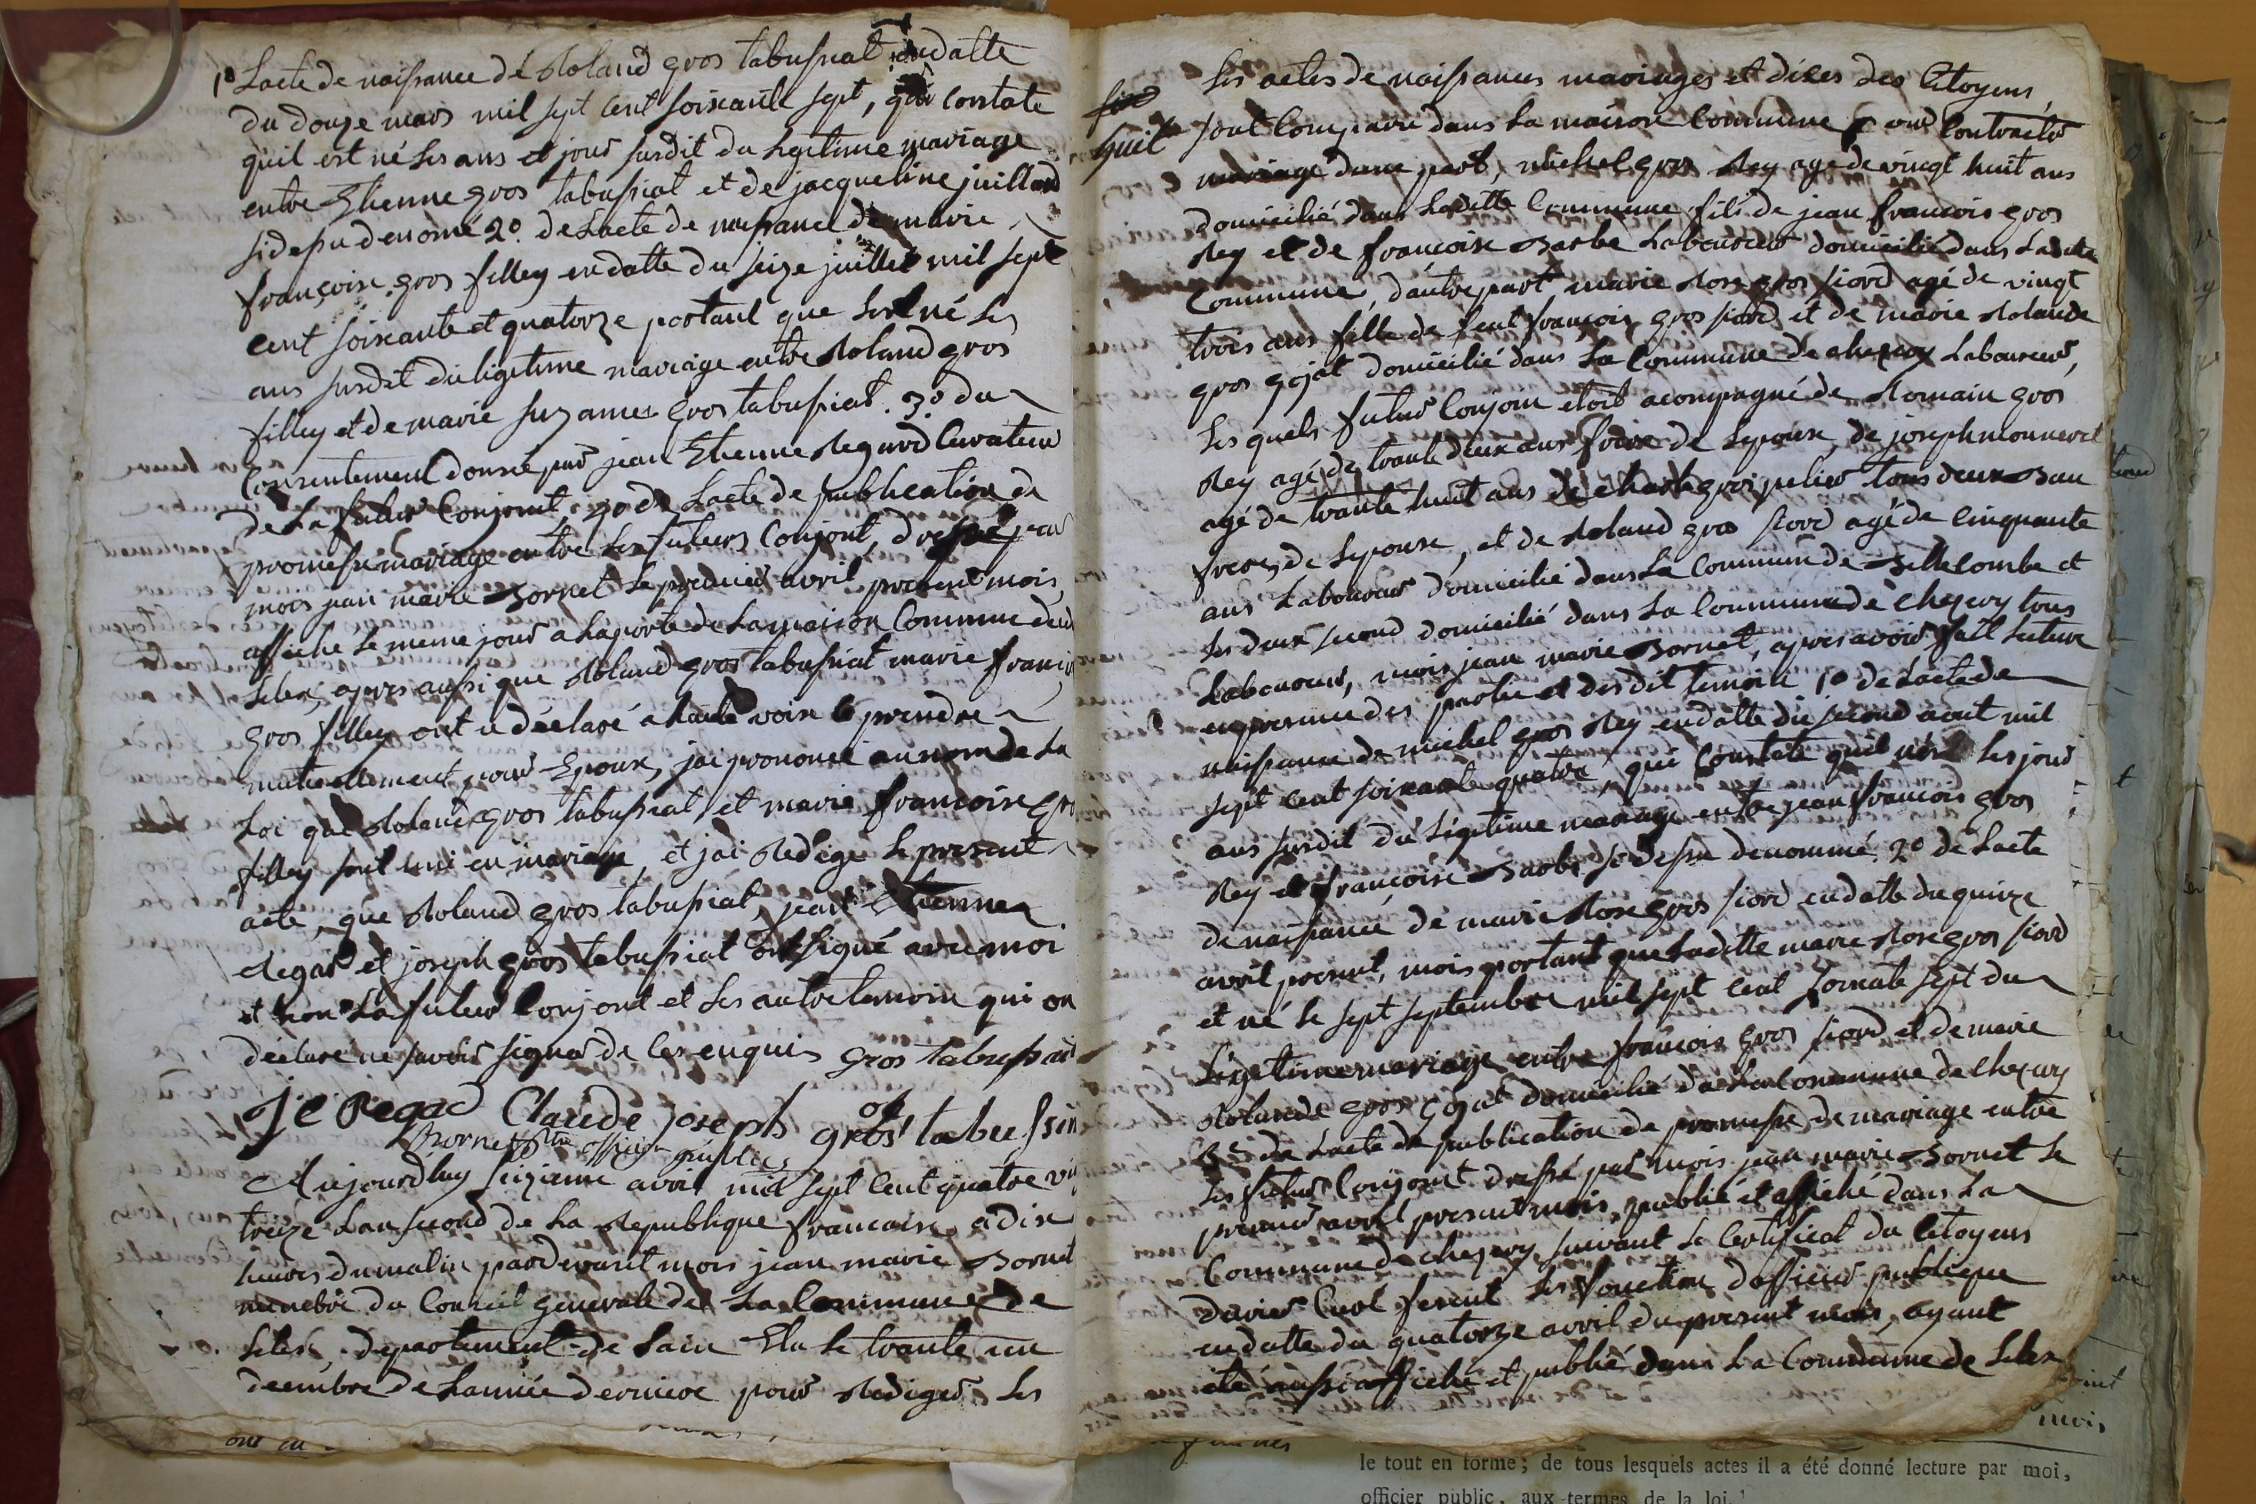 1o Lacte de naissance de Roland gros tabussiat endatte
du douze mars mil sept cent soixante sept, qui constate
quil est né les ans et jour susdit du legitime mariage
entre Etienne gros tabussiat et de jacqueline juilland
sidessu denomé 2o. de Lacte de naissance de marie
françoise gros filley endatte du seize juillet mil sept
cent soixante et quatorze portant que né les
ans susdit du ligitime mariage entre Roland gros
filley et de marie suzanne gros tabussiat. 3o du
Consentement donné par jean Etienne Regard Curateur
de La futur Conjoint, de Lacte de publication de
promesse mariage entre Les futurs Conjont, dressé par
mois jean marie Bornet Le premier avril present mois,
affiché Le meme jour a Laporte de La maison Commune de
Lelex, apres aussi que Roland gros tabussiat marie
gros filley ont u déclaré a haute voix se prendre
mutuellement pour Epoux, jai prononcé aunom de La
Loi que Roland gros tabussiat et marie francoise gro
filley sont uni en mariage, et jai Redigé Le present
acte, que Roland gros tabussiat, jean Etienne
Regar et joseph gros tabussiat ont signé avec moi
et non La futur Conjont et Les autre temoin qui on
déclare ne savoir signer de ces enquis gros tabussiat
JE Regad Claude joseph gros tabussiat
Bornet officier public
Aujourdhuy seizieme avril mil sept Cent quatre vin
treize Lan second de La Republique francaise, a dix
heures du matin pardevant mois jean marie Bornet
menebre du Conseil generale de La Commune de
Lelex, departement de Lain Elu Le trante un
decembre de Lannée derniere pour Rediger Les
Les actes de naissances mariages et déces des Citoyens,
huit sont Compaire dans La maison Commune pour Contracter
mariage dune part, michel gros Rey agé de vingt huit ans
domicilié dans Laditte Commune fils de jean francois gros
Rey et de francoise Barbe Laboureur domicilié dans Ladite
Commune, dautre part marie Rose gros fiord agé de vingt
trois ans fille de feut francois gros fiord et de marie Rolande
gros gojat domicilié dans La Commune de chezery Laboureur,
Les quels futur Conjoin etoit acompagné de Romain gros
Rey agé de trante deux ans frere de Lepoux, de joseph monneret
agé de trante huit ans de charle gros tous deux Bau
frere de Lepouse, et de Roland gros fiord agé de Cinquante
ans Laboureur domicilié dans La Commune de Bellecombe et
Les deux second domicilié dans La Commune de chezery tous
Laboureur, mois jean marie Bornet, apres avoir fait Lecture
enpresence des partie et desdit temoin 1o de Lacte de
naissance de michel gros Rey endatte du second aout mil
sept cent soixante quatre, qui Constate quil né Les jour
ans susdit du Legitime mariage entre jean francois gros
Rey et françoise Barbe sidessu denommé 2o de Lacte
de naissance de marie Rose gros fiord endatte du quinze
avril present, mois portant que Laditte marie Rose gros fiord
et né le sept septembre mil sept Cent soixante sept du
Legitime mariage entre francois gros fiord et de marie
Rolande gros gojat domicilié dans La Commune de chezery
3o de Lacte de publication de promesse de mariage entre
Les futur Conjoint dressé par mois jean marie Bornet Le
premier avril present mois, publié et affiché dans La
Commune de chezery suivant Le Certificat du Citoyens
davier Curé fesent Les fonction dofficier publique
endatte du quatorze avril du present mois, ayant
eté aussi affiché et publié dans La Commune de Lelex
mois
le tout en forme ; de tous lesquels actes il a été donné lecture par moi,
officier public, aux termes de la loi.